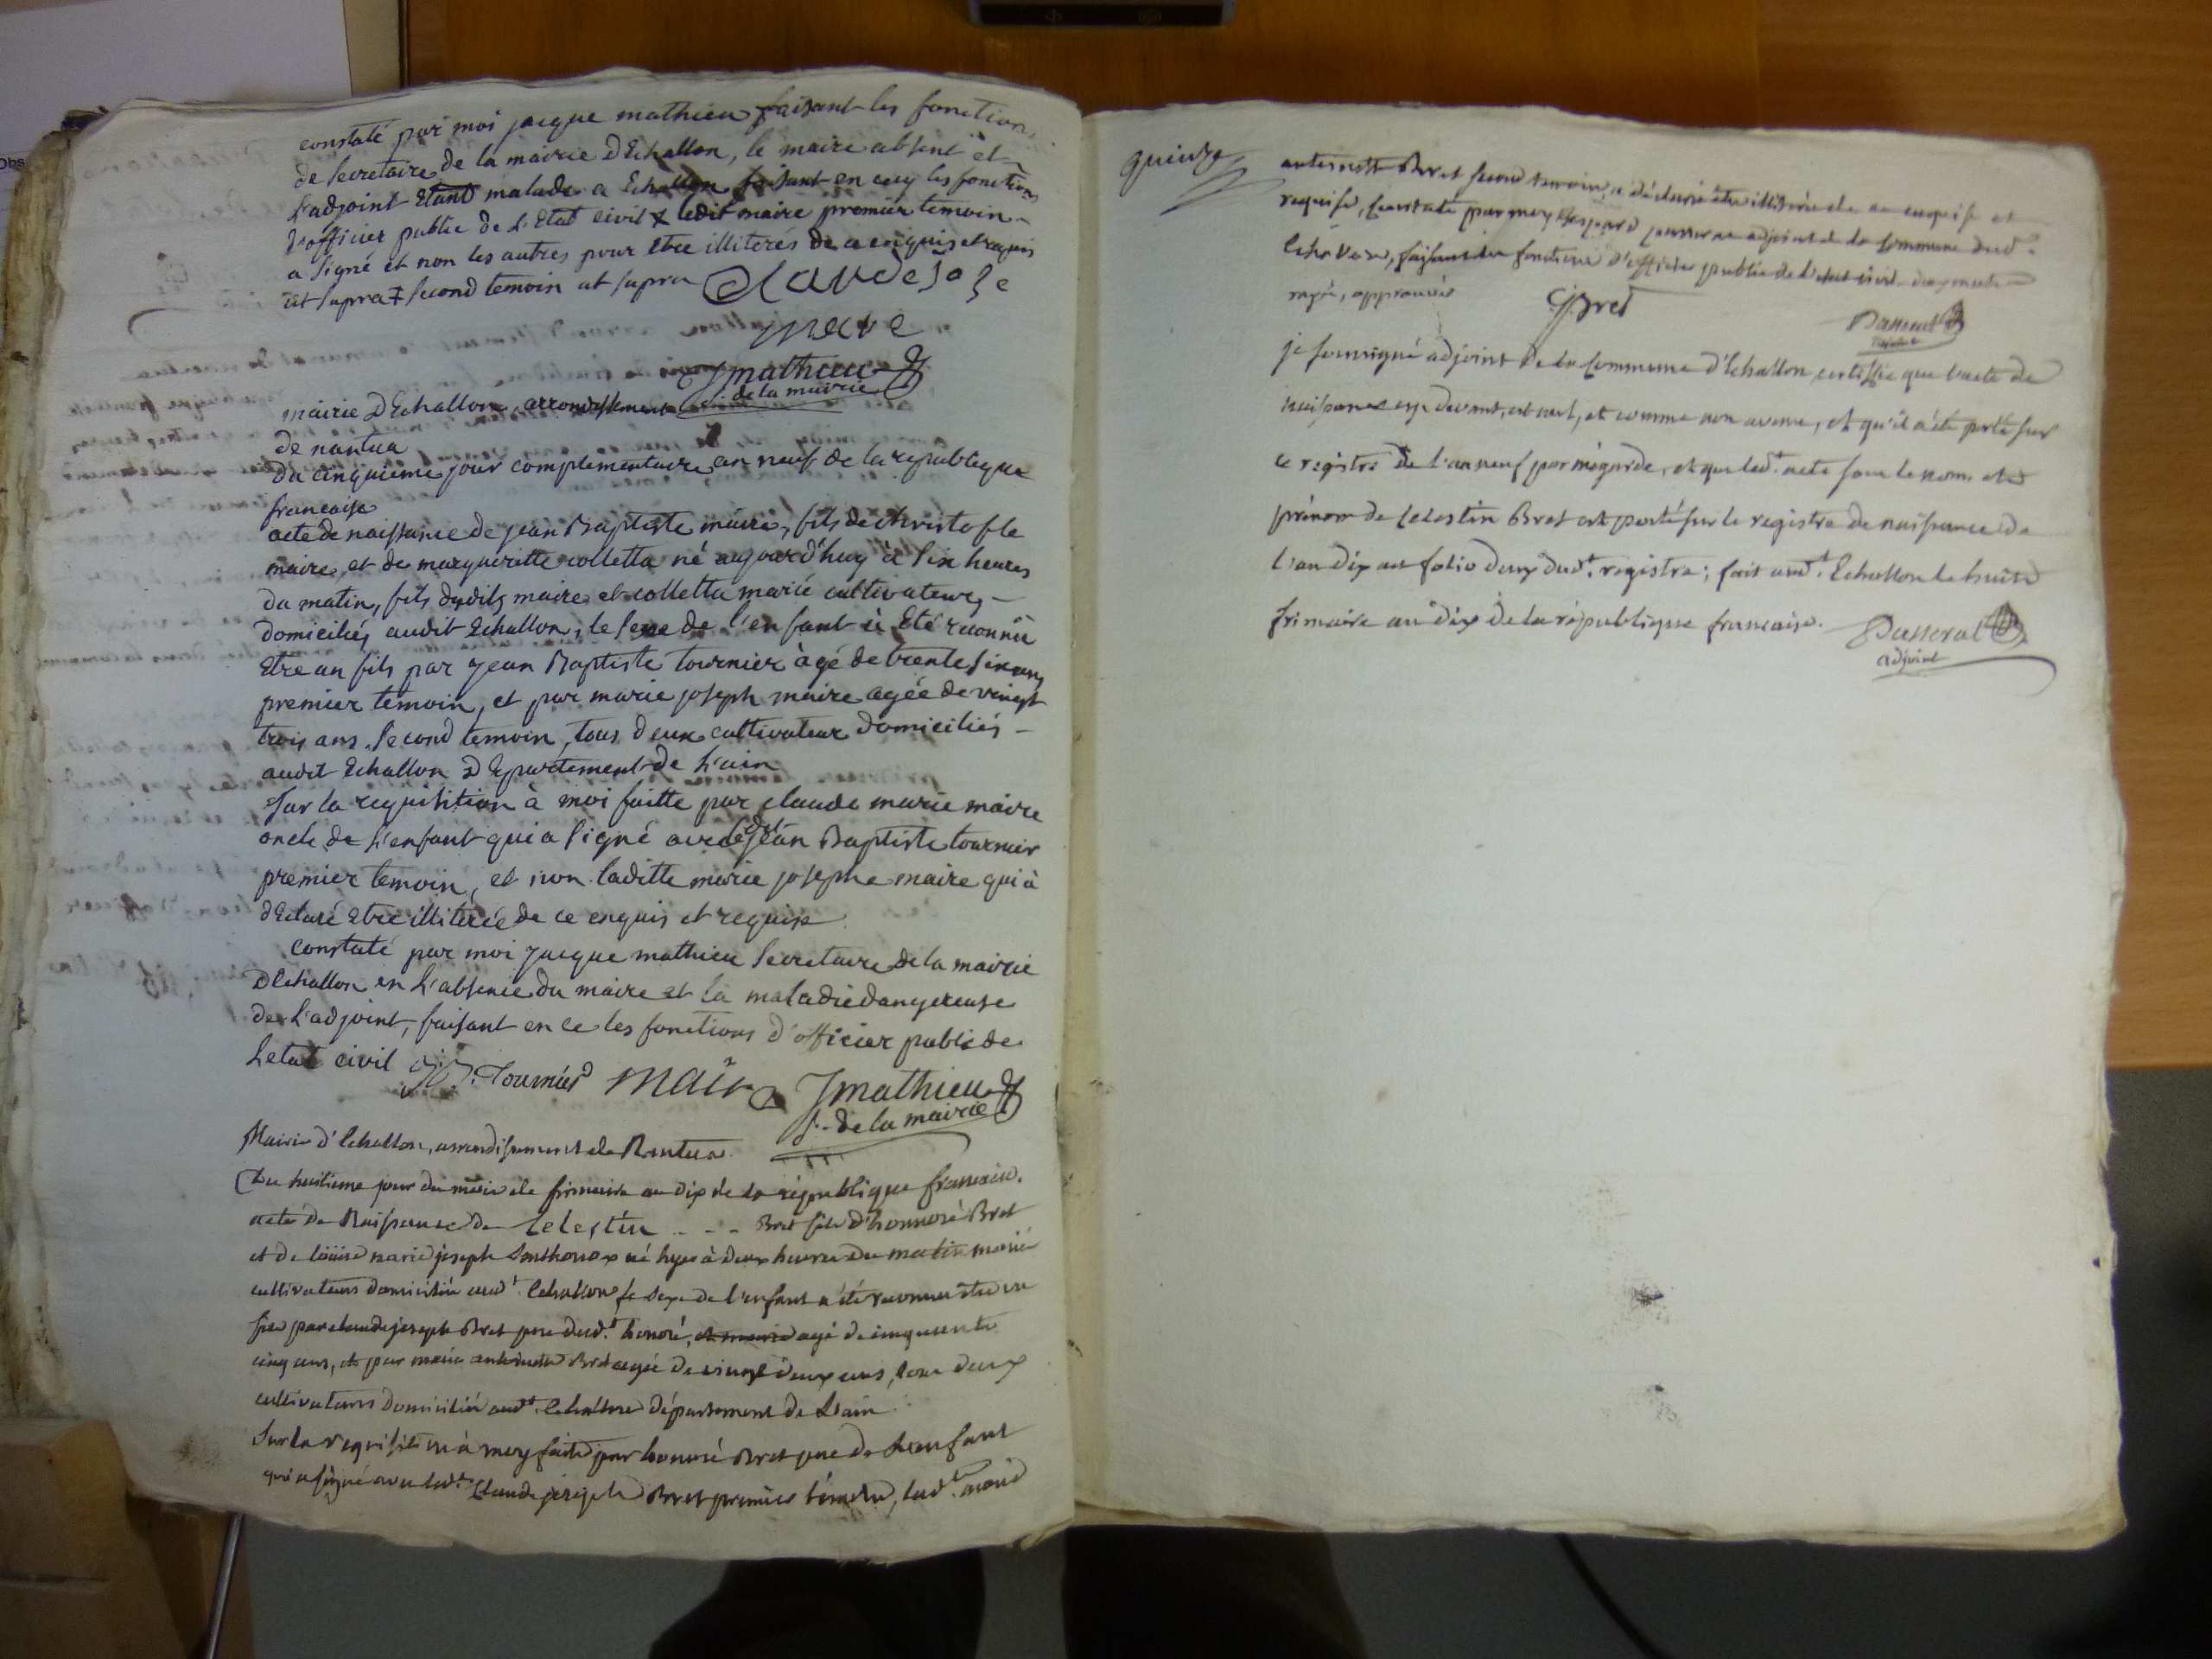 constaté par moi jacque mathieu faisant les fonctions
de secretaire de la mairie D'Echallon, le maire absent et
L'adjoint Etant malade a Echallon faisant en ceci les fonctions
d'officier public de L'Etat civil ledit maire premier temoin
a signé et non les autres pour Etre illiterés de ce enquis et requis
ut supra second temoin ut supra Claude Jose
maire
Jmathieu
s. de la mairie
mairie D'Echallon, arrondissement
de nantua
Du cinquieme jour complementaire an neuf de la republique
francaise
acte de naissance de jean Baptiste maire, fils de christofle
maire et de margueritte colletta né aujourd'huy à six heures
du matin, fils dudits maire et colletta marié cultivateurs
domiciliés audit Echallon, le sexe de l'enfant à Eté reconnû
Etre un fils par jean Baptiste tournier àgé de trente six ans
premier temoin, et par marie joseph maire agée de vingt
trois ans second temoin, tous deux cultivateur domiciliés
audit Echallon DEpartement de L'ain
Sur la requisition à moi faitte par claude marie maire
oncle de L'enfant qui a signé avec ledit jean Baptiste tournier
premier temoin, et non laditte marie josephe maire qui à
dEclaré Etre illiterée de ce enquis et requise
constaté par moi jacque mathieu secretaire de la mairie
DEchallon en L'absence du maire et la maladie dangereuse
de L'adjoint, faisant en ce les fonctions d'officier public de
Letat civil JB. Tournier maire Jmathieu
s. de la mairie
Mairie d'Echallon, arrondissement de Nantua
Du huitieme jour du mois de frimaire an dix de la république francaise.
acte de Naissance de Celestin - - - Bret fils d'honnoré Bret
et de louise marie joseph né hyer à deux heures du matin marié
cultivateurs domiciliés aud.t Echallon le sexe de l'enfant a été reconnu être un
fils par claude joseph Bret pere dud.t honoré, et marie agé de cinquante
cinq ans, et par marie antoinette Bret agée de vingt deux ans, tous deux
cultivateurs domiciliés aud.t Echallon département de L'ain
Sur la requisition à moy faite par honnoré Bret pere de L'enfant
qui a signé avec led.t Claude joseph Bret premier témoin, lad.t marie
quinze
antoinette Bret second temoin, a déclaré être illitérée de ce enquise et
requise, Constaté par moy adjoint de la Commune dud.
Echallon, faisant les fonctions d'officier public de l'etat civil
rayé, approuvés CJBret Passerat
je soussigné adjoint de la Commune d'Echallon certiffie que l'acte de
naissance cy devant, est nul, et comme non avenu, et qu'il a été porté sur
ce registre de l'an neuf par mégarde, et que led.t acte sous le nom et
prénom de Celestin Bret est porté sur le registre de naissance de
l'an dix au folio deux dud.t registre; fait aud.t Echallon le huit
frimaire an dix de la république francaise. Passerat
adjoint